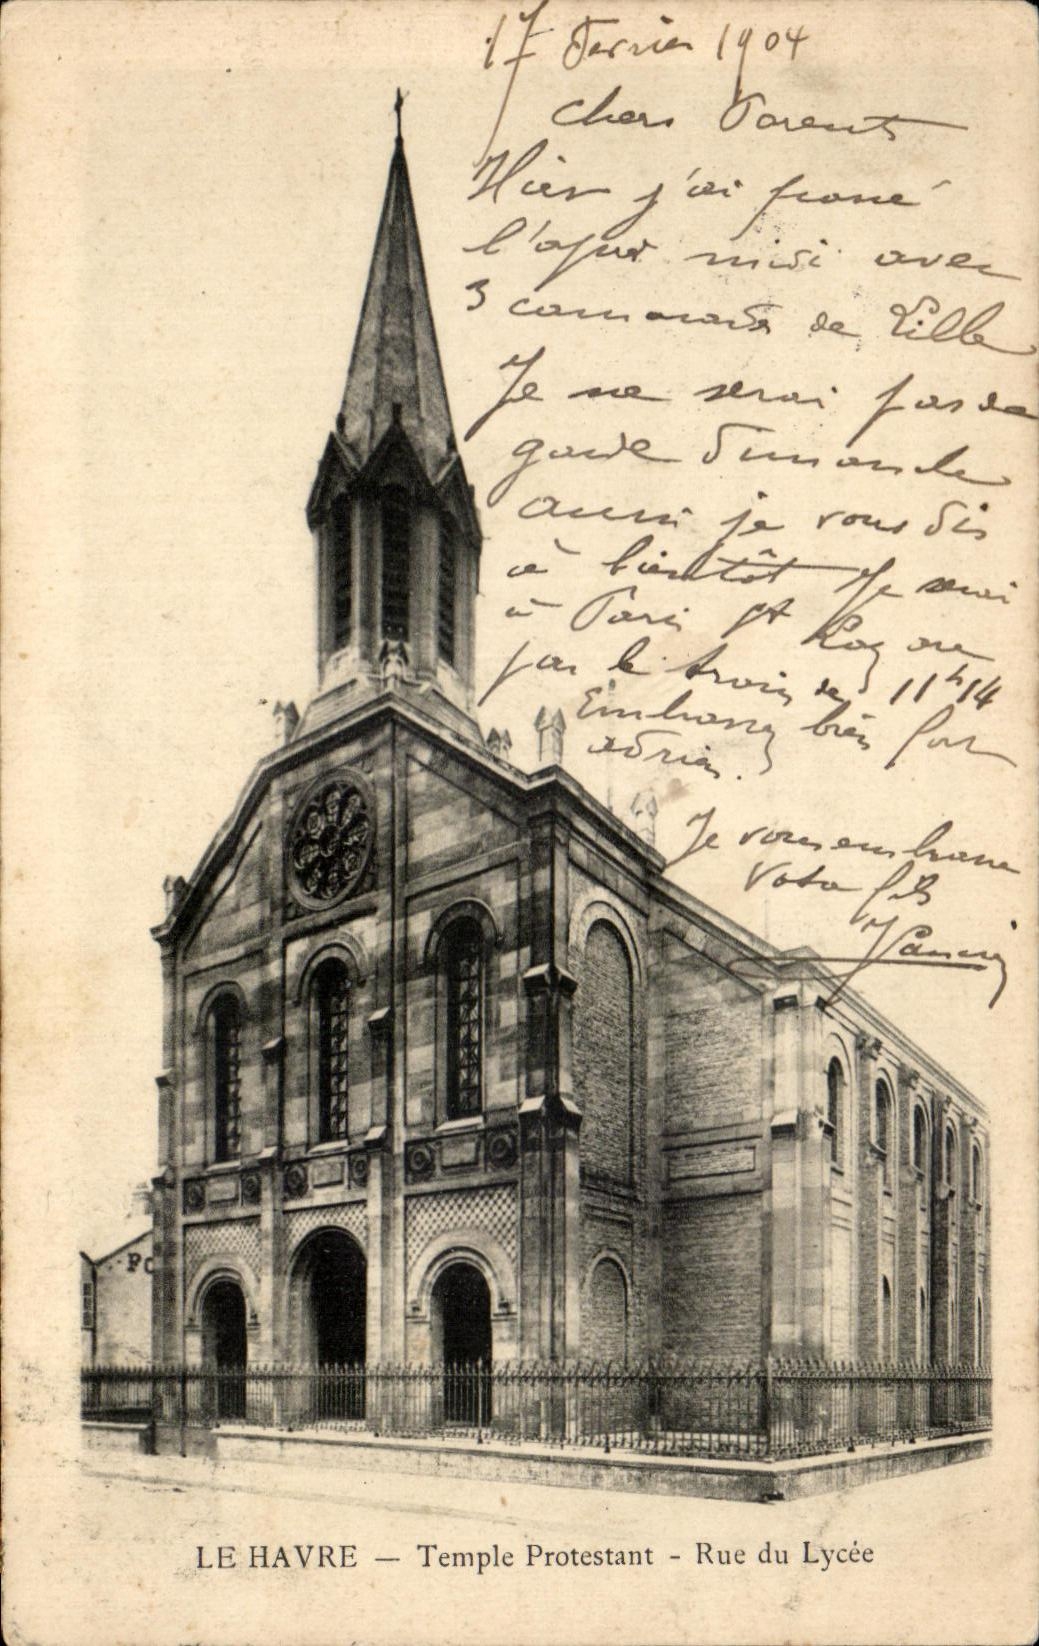 17 Fevrier 1904
Chers Parents
Hier j'ai passé
l'après midi avec
3 camarades de Lille
Je ne serai pas de
garde Dimanche
aussi je vous dis
à bientôt Je serai
à Paris St Lazare
par le train de 11h14
Embrassez bien fort
Adrien.
Je vous embrasse
Votre fils
PO
LE HAVRE — Temple Protestant - Rue du Lycée